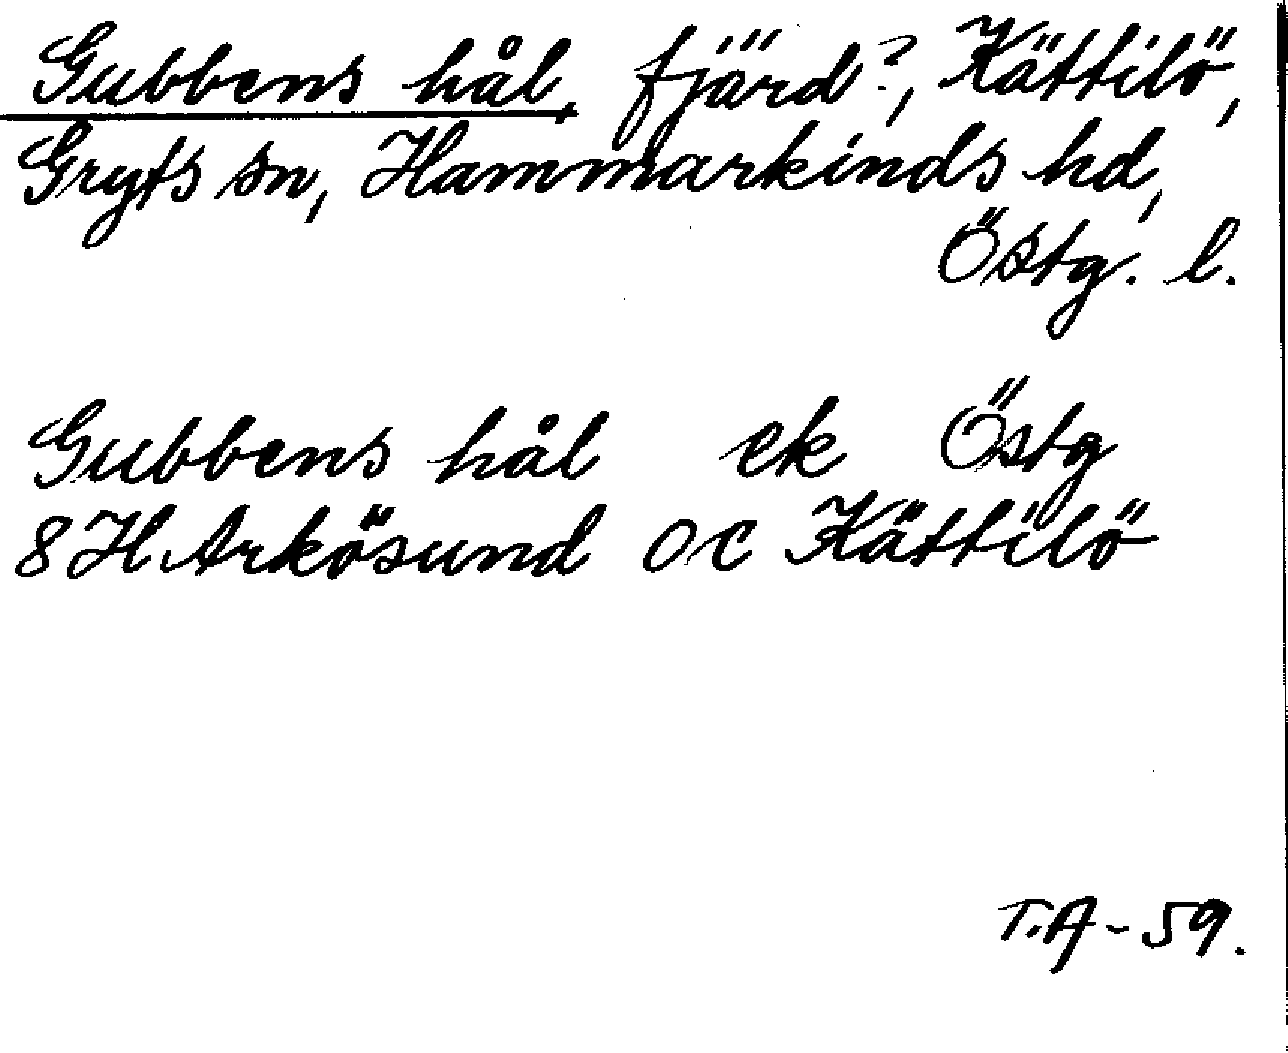 Gubbens hål, fjärd?, Kättilö,
Gryts sn, Hammarkinds hd,
Östg. l.
Gubbens hål ek Östg
8H Arkösund OC Kättilö
T.A-59.